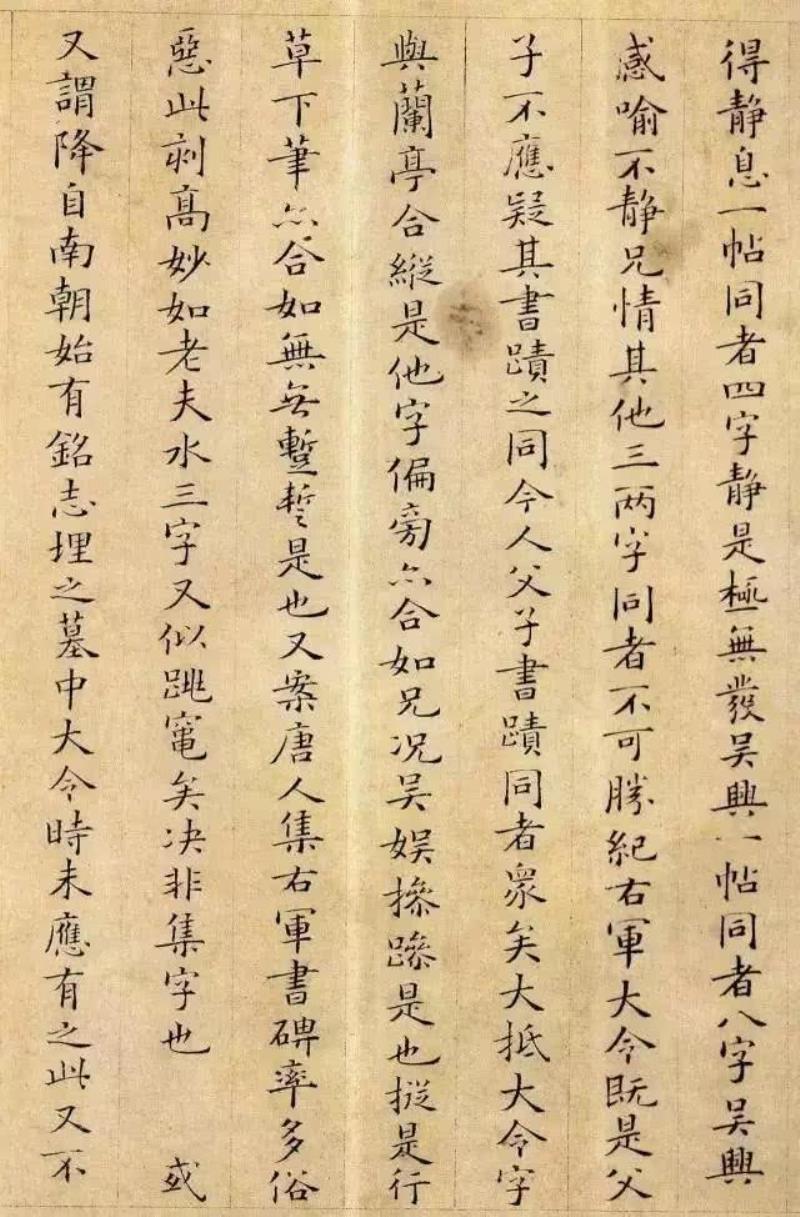 得静息一帖同者四字静是極無發吴興一帖同者八字吴興
感喻不静兄情其他三兩字同者不可勝紀右軍大令既是父
子不應疑其書蹟之同今人父子書蹟同者衆矣大抵大令字
與蘭亭合縱是他字偏旁亦合如兄况吴娱摻蹂是也搃是行
草下筆亦合如無無蹔蹔是也又案唐人集右軍書碑率多俗
惡此刻高妙如老夫水三字又似跳竃矣决非集字也 或
又謂降自南朝始有銘志埋之墓中大令時未應有之此又不